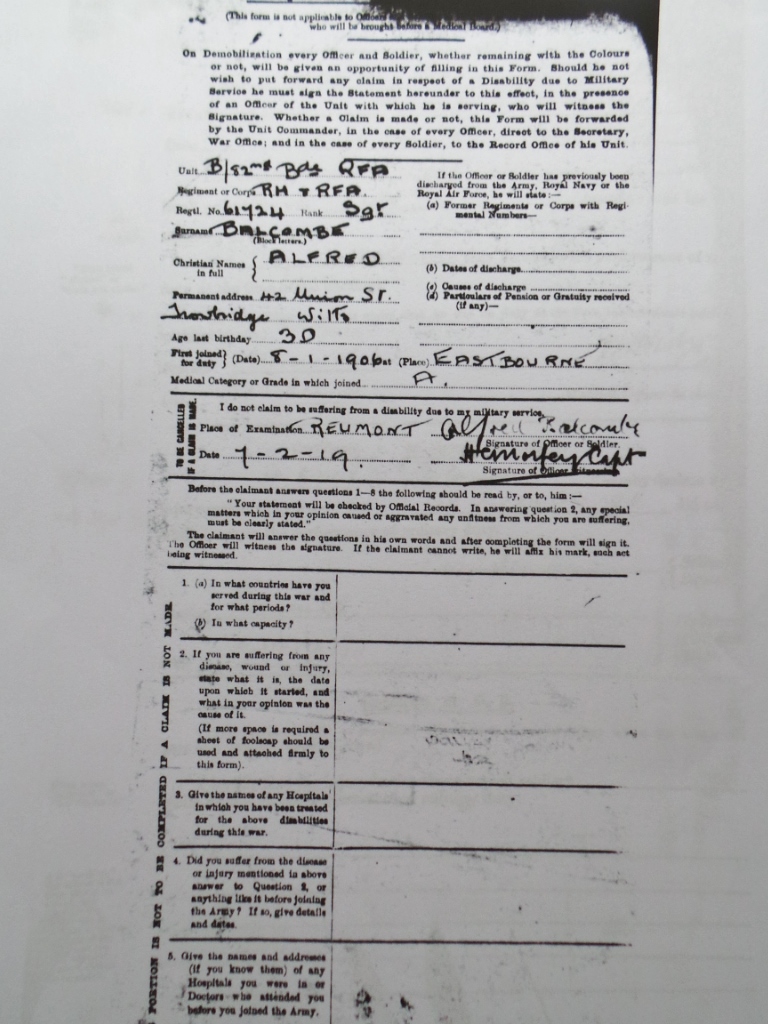 (This form is not applicable to Officers
who will be brought before a Medical Board.)
On Demobilization every Officer and Soldier, whether remaining with the Colours
or not, will be given an opportunity of filling in this Form. Should he not
wish to put forward any claim in respect of a Disability due to Military
Service he must sign the Statement hereunder to this effect, in the presence
of an Officer of the Unit with which he is serving, who will witness the
Signature. Whether a Claim is made or not, this Form will be forwarded
by the Unit Commander, in the case of every Officer, direct to the Secretary,
War Office; and in the case of every Soldier, to the Record Office of his Unit.
Unit B/82nd Bde RFA
Regiment or Corps RH & RFA.
Regtl. No. 61724 Rank Sgt
Surname BALCOMBE
(Block letters.)
Christian Names in full } ALFRED
Permanent address 42 Union St.
Trowbridge Wilts
Age last birthday 30
If the Officer or Soldier has previously been
discharged from the Army, Royal Navy or the
Royal Air Force, he will state :—
(a) Former Regiments or Corps with Regi-
mental Numbers—
(b) Dates of discharge
(c) Causes of discharge
(d) Particulars of Pension or Gratuity received
(if any)—
First joined for duty } (Date) 8-1-1906 at (Place) EASTBOURNE
Medical Category or Grade in which joined A.
TO BE CANCELLED
IF A CLAIM IS MADE.
I do not claim to be suffering from a disability due to my military service.
Place of Examination REUMONT Alfred Balcombe
Signature of Officer or Soldier.
Date 7-2-19. Capt
Signature of Officer
Before the claimant answers questions 1—8 the following should be read by, or to, him :—
"Your statement will be checked by Official Records. In answering question 2, any special
matters which in your opinion caused or aggravated any unfitness from which you are suffering,
must be clearly stated."
The claimant will answer the questions in his own words and after completing the form will sign it.
The Officer will witness the signature. If the claimant cannot write, he will affix his mark, such act
being witnessed.
PORTION IS NOT TO BE COMPLETED IF A CLAIM IS NOT MADE.
1. (a) In what countries have you
served during this war and
for what periods?
(b) In what capacity?
2. If you are suffering from any
disease, wound or injury,
state what it is, the date
upon which it started, and
what in your opinion was the
cause of it.
(If more space is required a
sheet of foolscap should be
used and attached firmly to
this form).
3. Give the names of any Hospitals
in which you have been treated
for the above disabilities
during this war.
4. Did you suffer from the disease
or injury mentioned in above
answer to Question 2, or
anything like it before joining
the Army? If so, give details
and dates.
5. Give the names and addresses
(if you know them) of any
Hospitals you were in or
Doctors who attended you
before you joined the Army.